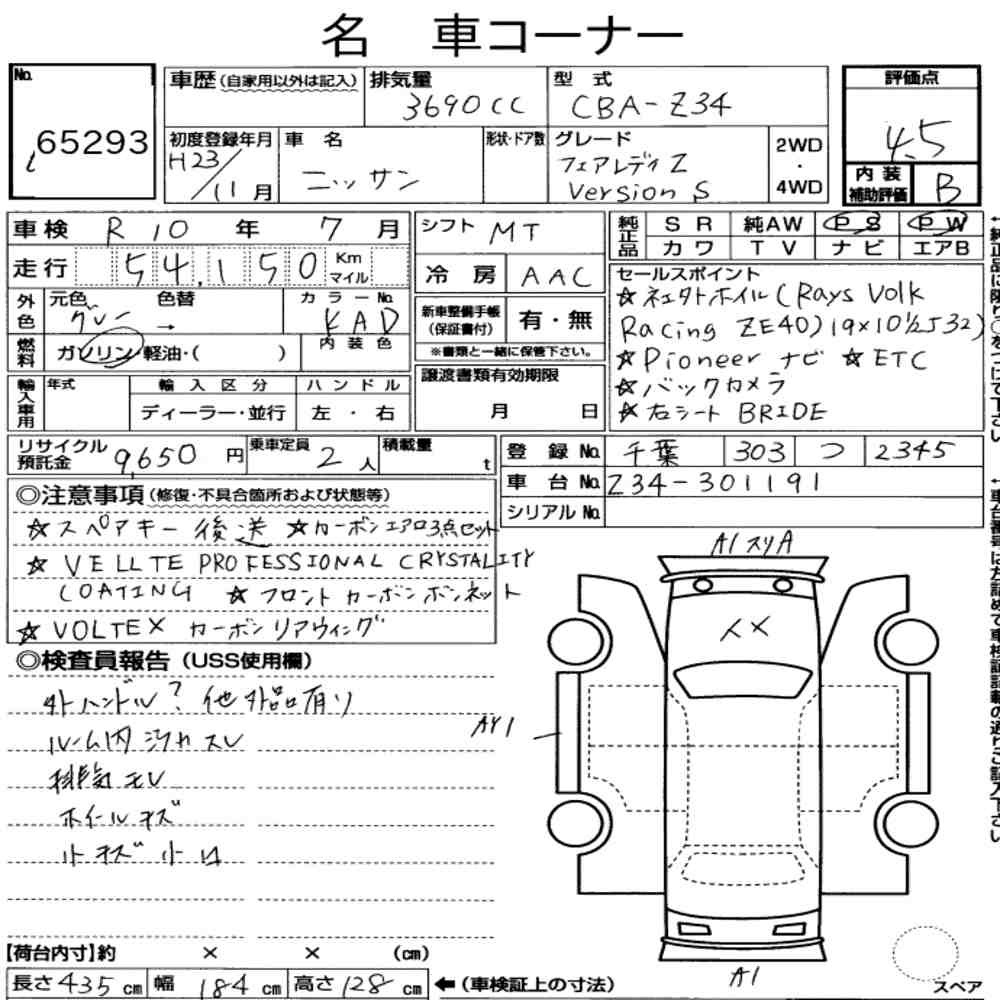 名 車コーナー
No. 65293
車歴(自家用以外は記入) 排気量 3690cc 型式 CBA-Z34
評価点 4.5
初度登録年月 H23/11月 車名 ニッサン 形状・ドア数 グレード フェアレディZ Version S 2WD・4WD
内装補助評価 B
車検 R10年 7月 シフト MT
純正品 SR 純AW PS PW
カワ TV ナビ エアB
走行 54,150 Km マイル
冷房 AAC
セールスポイント
☆社外ホイル(Rays Volk
Racing ZE40)19×10½J32)
☆Pioneer ナビ ☆ETC
☆バックカメラ
☆右シート BRIDE
外色 元色 グレー → 色替 カラーNo. KAD
新車整備手帳(保証書付) 有・無
※書類と一緒に保管下さい。
燃料 ガソリン・軽油・( ) 内装色
輸入車用 年式 輸入区分 ハンドル
ディーラー・並行 左・右
譲渡書類有効期限
月 日
リサイクル預託金 9,650円 乗車定員 2人 積載量 t
登録No. 千葉 303 つ 2345
車台No. Z34-301191
シリアルNo.
◎注意事項(修復・不具合箇所および状態等)
☆スペアキー後送 ☆カーボンエアロ3点セット
☆VELLTE PROFESSIONAL CRYSTALITY
COATING ☆フロントカーボンボンネット
☆VOLTEX カーボンリアウィング
◎検査員報告(USS使用欄)
外ハンドル? 他外品有り
ルーム内ヨゴレスレ
排気モレ
ホイールキズ
小キズ小凹
A1スリA
XX
AY1
A1
【荷台内寸】約 × × (cm)
長さ435cm 幅184cm 高さ128cm ←(車検証上の寸法)
スペア
↑純正品に限り○をつけて下さい
↑車台番号は右詰めで車検証記載の通りご記入下さい